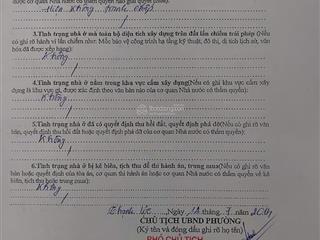 được cơ quan Nhà nước có thẩm quyền nào giải quyết
Không tranh chấp
3.Tình trạng nhà ở mà toàn bộ diện tích xây dựng trên đất lấn chiếm trái phép (Nếu
có ghi rõ hành vi lấn chiếm như: Mốc bảo vệ công trình hạ tầng kỹ thuật, đô thị, di tích lịch sử, văn
hóa đã được xếp hạng):
Không
4.Tình trạng nhà ở nằm trong khu vực cấm xây dựng(Nếu có ghi khu vực cấm xây
dựng là khu vực gì, được xác định theo văn bản nào của cơ quan Nhà nước có thẩm quyền):
Không
5.Tình trạng nhà ở đã có quyết định thu hồi đất, quyết định phá dỡ(Nếu có ghi rõ văn
bản, quyết định thu hồi đất hoặc quyết định phá dỡ của cơ quan Nhà nước có thẩm quyền):
Không
6.Tình trạng nhà ở bị kê biên, tịch thu để thi hành án, trưng mua(Nếu có ghi rõ văn
bản hoặc quyết định của tòa án, cơ quan thi hành án, cơ quan Nhà nước có thẩm quyền về
kê biên, tịch thu hoặc trưng mua):
Không
Thạnh Lộc, Ngày 12 tháng 7 năm
CHỦ TỊCH UBND PHƯỜNG
(Ký tên và đóng dấu ghi rõ họ tên)
PHÓ CHỦ TỊCH